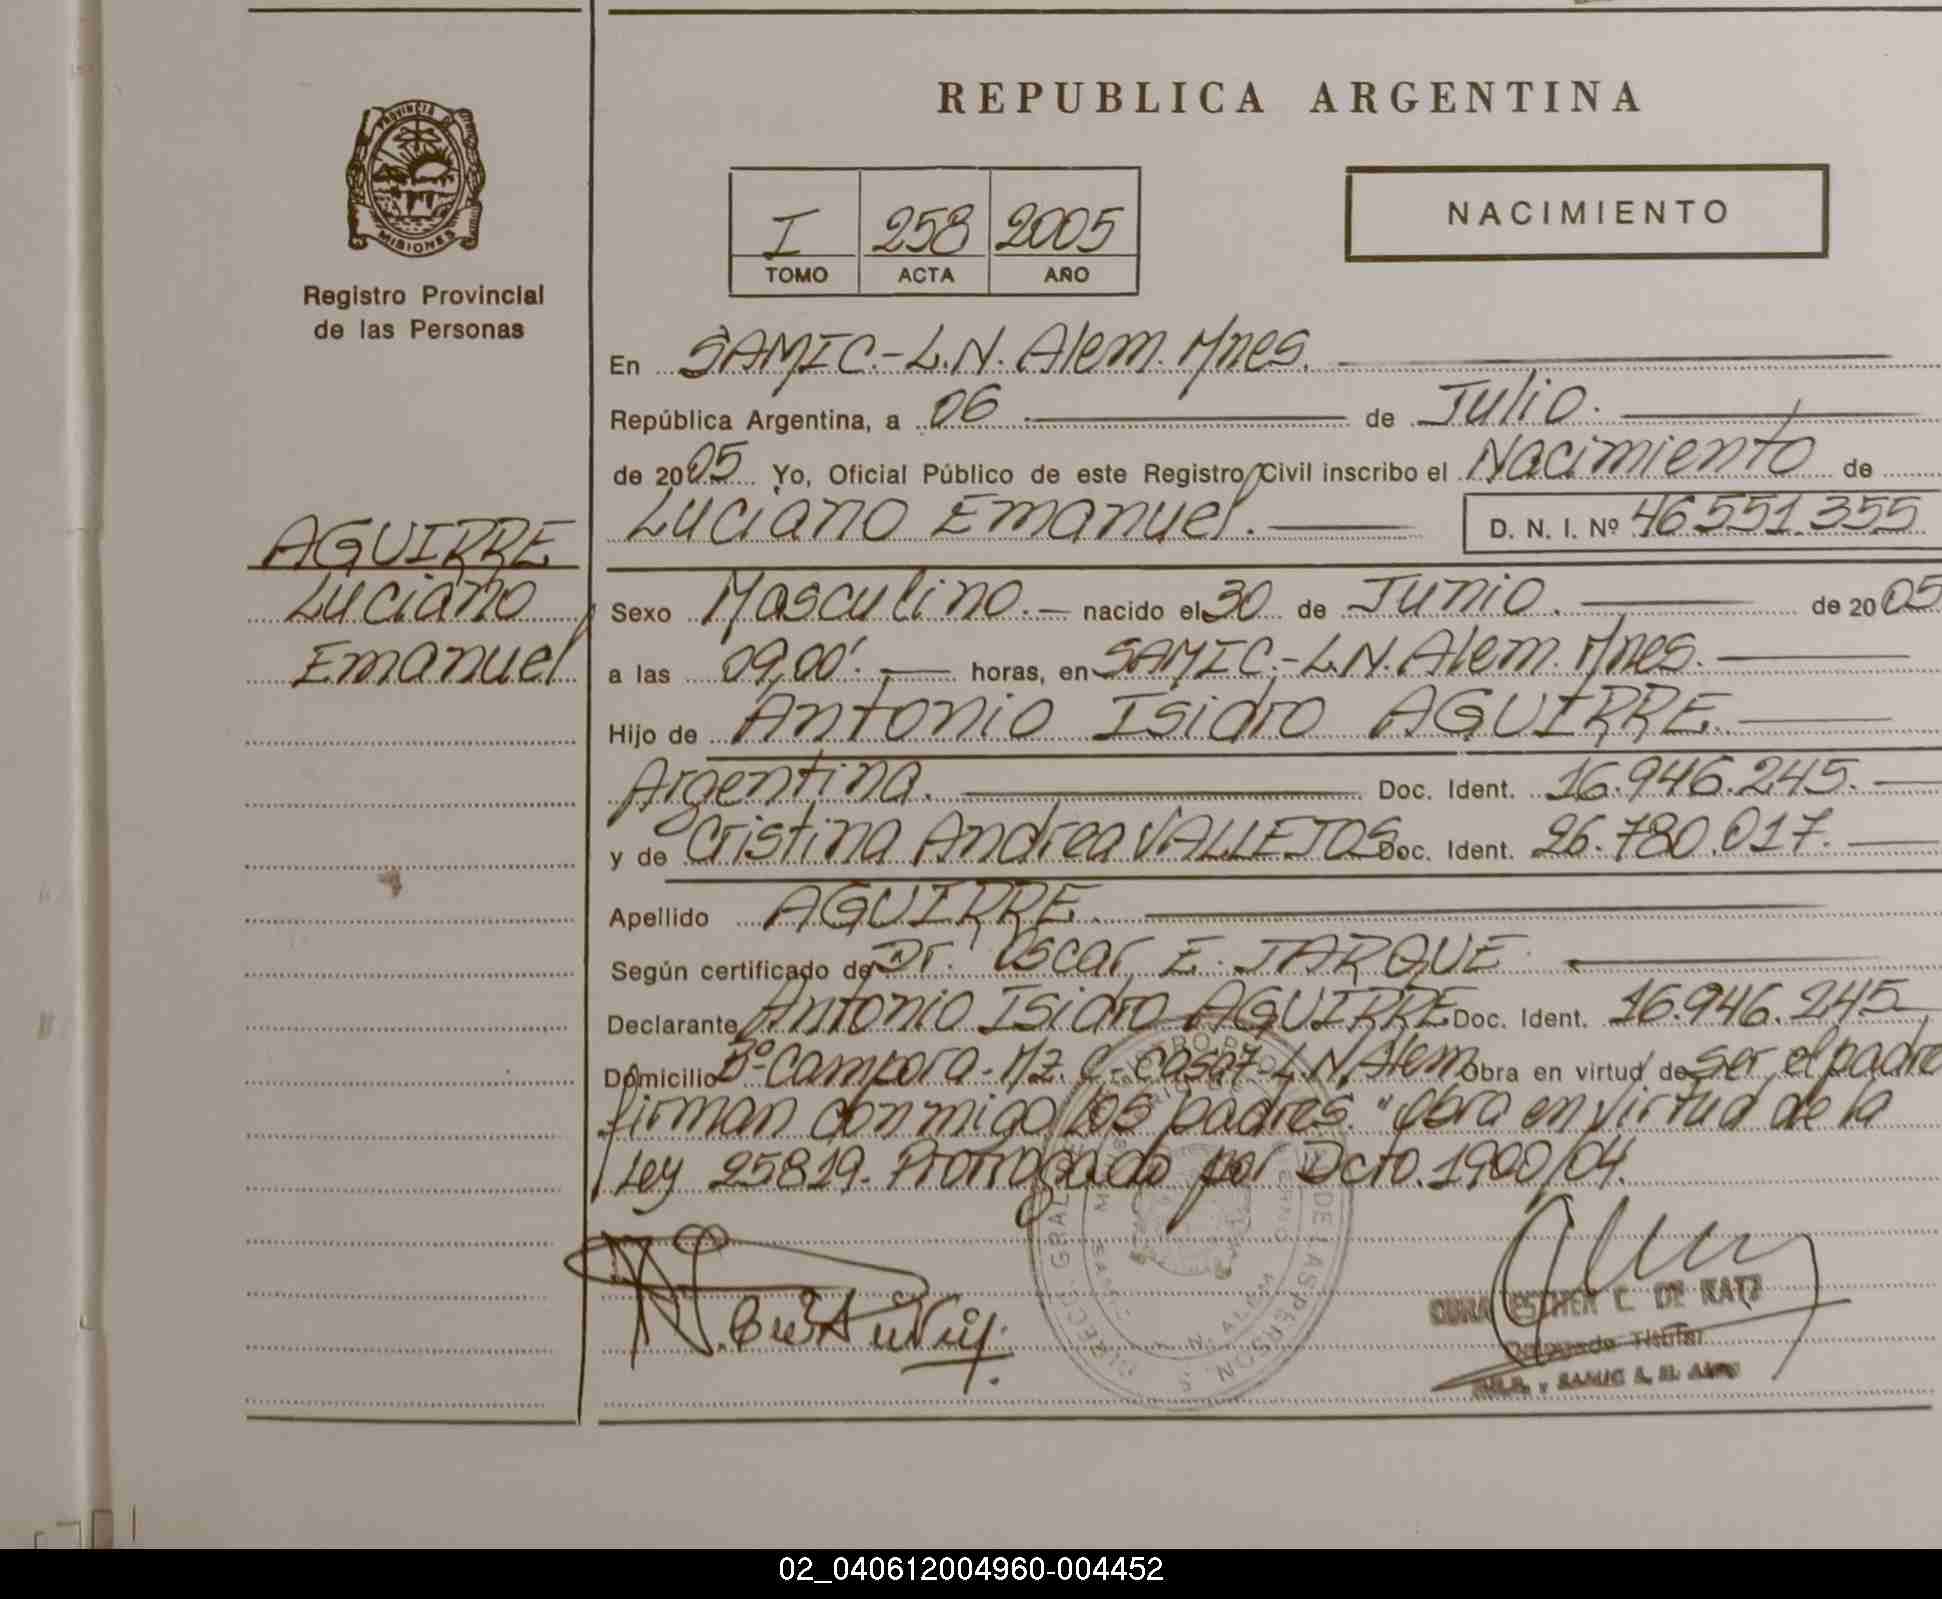 REPUBLICA ARGENTINA
PROVINCIA DE
MISIONES
Registro Provincial
de las Personas
I 258 2005
TOMO ACTA AÑO
NACIMIENTO
En SAMIC.-L.N. Alem. Mnes.
República Argentina, a 06 de Julio.
de 2005 Yo, Oficial Público de este Registro Civil inscribo el Nacimiento de
Luciano Emanuel. D. N. I. Nº 46.551.355
AGUIRRE
Luciano
Emanuel
Sexo Masculino.- nacido el 30 de Junio. de 2005
a las 09,00'. horas, en SAMIC.-L.N. Alem. Mnes.
Hijo de Antonio Isidro AGUIRRE.
Argentina. Doc. Ident. 16.946.245.
y de Cristina Andrea VALLEJOS Doc. Ident. 26.780.017.
Apellido AGUIRRE.
Según certificado de Dr. Oscar E. JARQUE
Declarante Antonio Isidro AGUIRRE Doc. Ident. 16.946.245
Domicilio Bº Campora-Mz. C-casa 7-L.N. Alem Obra en virtud de ser el padre
firman conmigo los padres. "Obra en virtud de la
Ley 25819. Prorrogado por Dcto. 1900/04.
ESTHER C. DE KATZ
Delegado Titular
02_040612004960-004452